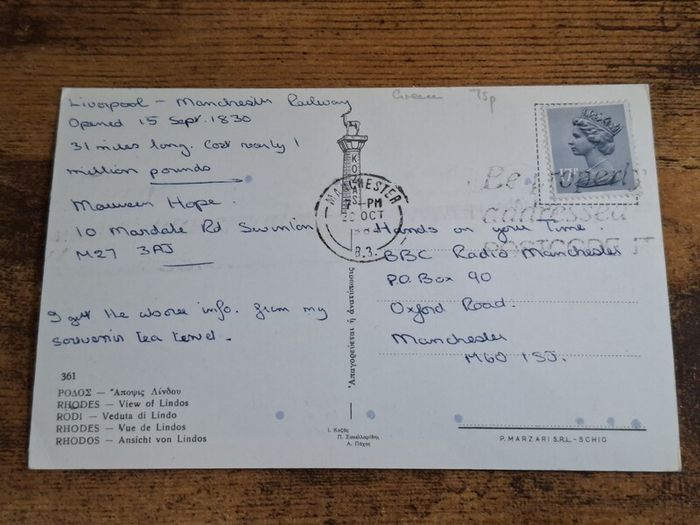 Liverpool – Manchester Railway
Opened 15 Sept. 1830
31 miles long. Cost nearly 1
million pounds
Maureen Hope.
10 Mandale Rd Swinton
M27 3AJ
I got the above info. from my
souvenir tea towel.
361
ΡΟΔΟΣ — Ἄποψις Λίνδου
RHODES — View of Lindos
RODI — Veduta di Lindo
RHODES — Vue de Lindos
RHODOS — Ansicht von Lindos
Greece 75p
ΚΟΛΑΣ
MANCHESTER
PM
OCT
Ἀπαγορεύεται ἡ ἀνατύπωσις
Ι. Κοζᾶς
Π. Σακελλαρίδης
Α. Πάχος
Be properly
addressed
POSTCODE IT
Hands on your Time.
BBC Radio Manchester
P.O. Box 90
Oxford Road.
Manchester
M60 1SJ.
P. MARZARI S.R.L. - SCHIO